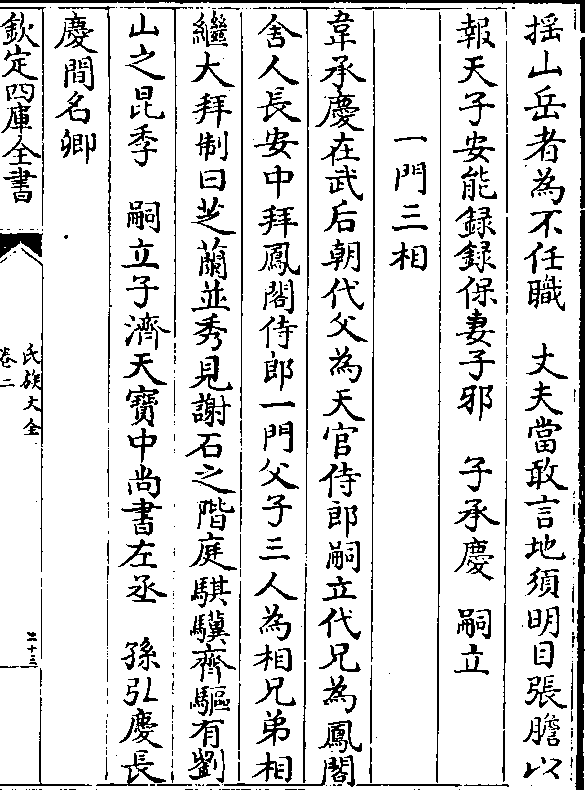 揺山岳者為不任職　丈夫當敢言地須明目張膽以
報天子安能録録保妻子邪　子承慶　嗣立
一門三相
韋承慶在武后朝代父為天官侍郎嗣立代兄為鳳閣
舍人長安中拜鳳閣侍郎一門父子三人為相兄弟相
繼大拜制曰芝蘭並秀見謝石之階庭騏驥齊驅有劉
山之昆季　嗣立子濟天寶中尚書左丞　孫弘慶長
慶間名卿
欽定四庫全書
氏族大全
卷二
二十三